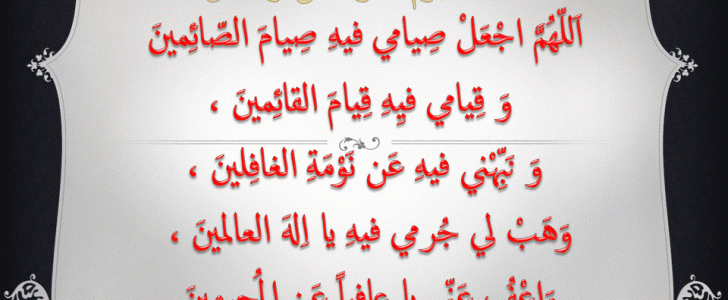 اَللّهُمَّ اجْعَلْ صِيامي فيهِ صِيامَ الصّائِمينَ
وَ قِيامي فيِهِ قِيامَ القائِمينَ ،
وَ نَبِّهْني فيهِ عَن نَوْمَةِ الغافِلينَ ،
وَهَبْ لي جُرمي فيهِ يا اِلهَ العالمينَ ،
وَاعْفُ عَنّي يا عافِياً عَنِ المُجرِمينَ